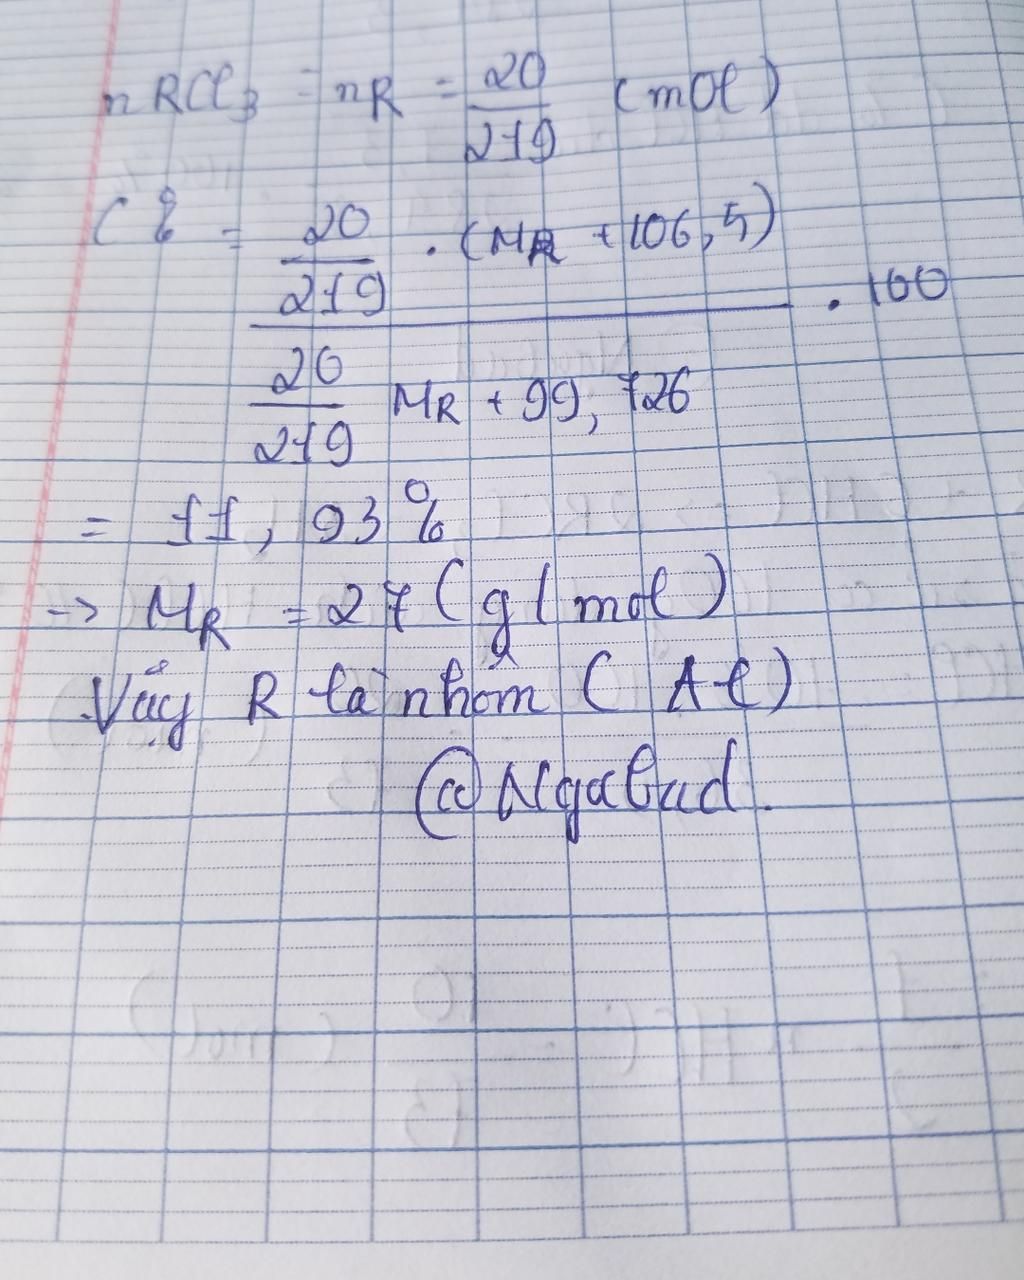 nRCl3 = nR = 20/219 (mol)
C% = 20/219 . (MR + 106,5) / 20/219 MR + 99,726 . 100
= 11,93%
-> MR = 27 (g/mol)
Vậy R là nhôm (Al)
@Ngabad.